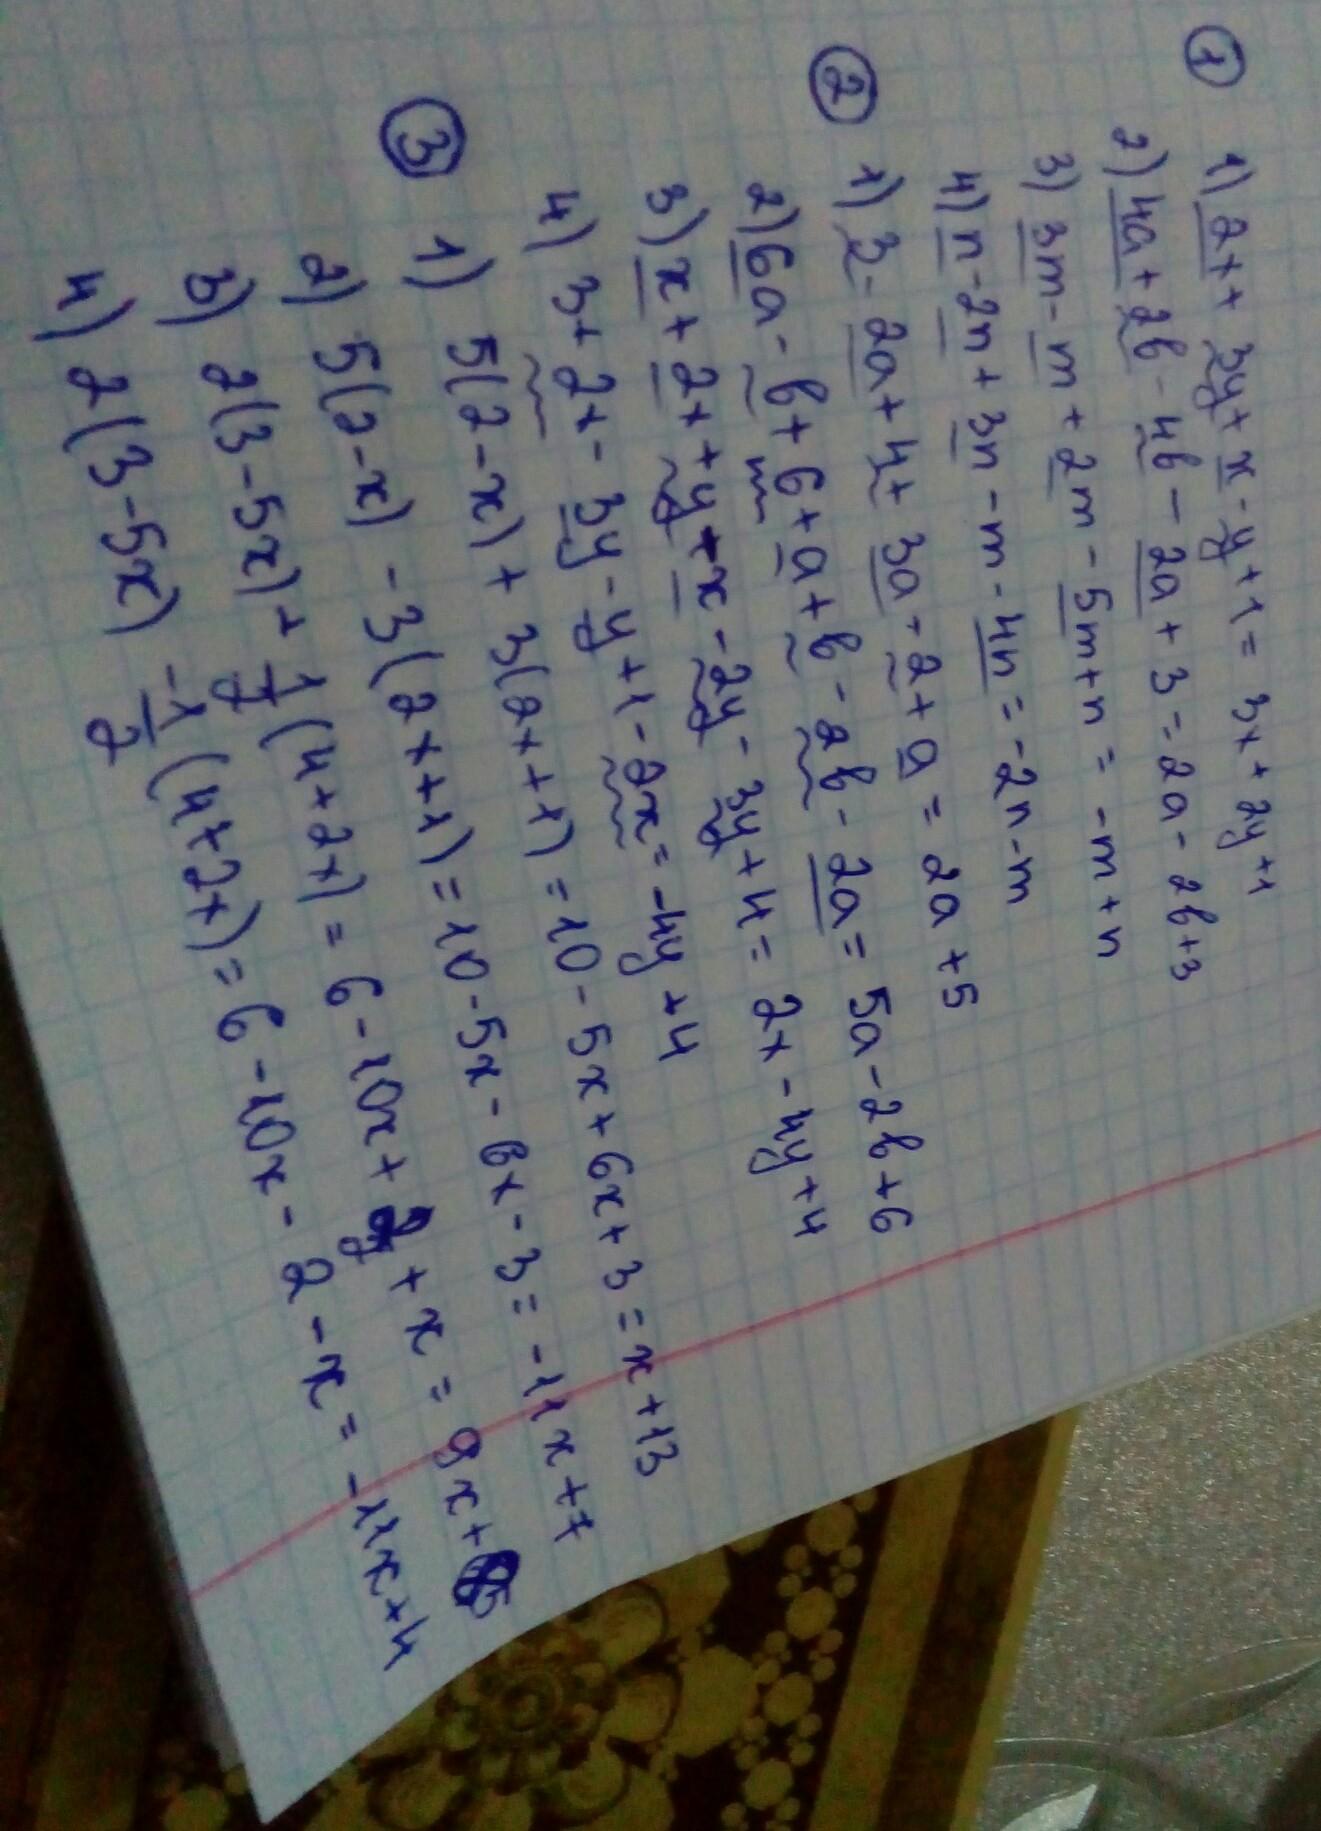 ① 1) 2x + 3y + x - y + 1 = 3x + 2y + 1
2) 4a + 2b - 4b - 2a + 3 = 2a - 2b + 3
3) 3m - m + 2m - 5m + n = -m + n
4) n - 2n + 3n - m - 4n = -2n - m
② 1) 3 - 2a + 4 + 3a - 2 + a = 2a + 5
2) 6a - b + 6 + a + b - 2b - 2a = 5a - 2b + 6
3) x + 2x + y - x - 2y - 3y + 4 = 2x - 4y + 4
4) 3 + 2x - 3y - y + 1 - 2x = -4y + 4
③ 1) 5(2 - x) + 3(2x + 1) = 10 - 5x + 6x + 3 = x + 13
2) 5(2 - x) - 3(2x + 1) = 10 - 5x - 6x - 3 = -11x + 7
3) 2(3 - 5x) + 1/2 (4 + 2x) = 6 - 10x + 2 + x = 9x +
4) 2(3 - 5x) -1/2 (4 + 2x) = 6 - 10x - 2 - x = -11x + 4